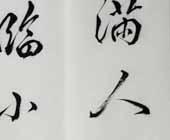 滿人
臨小